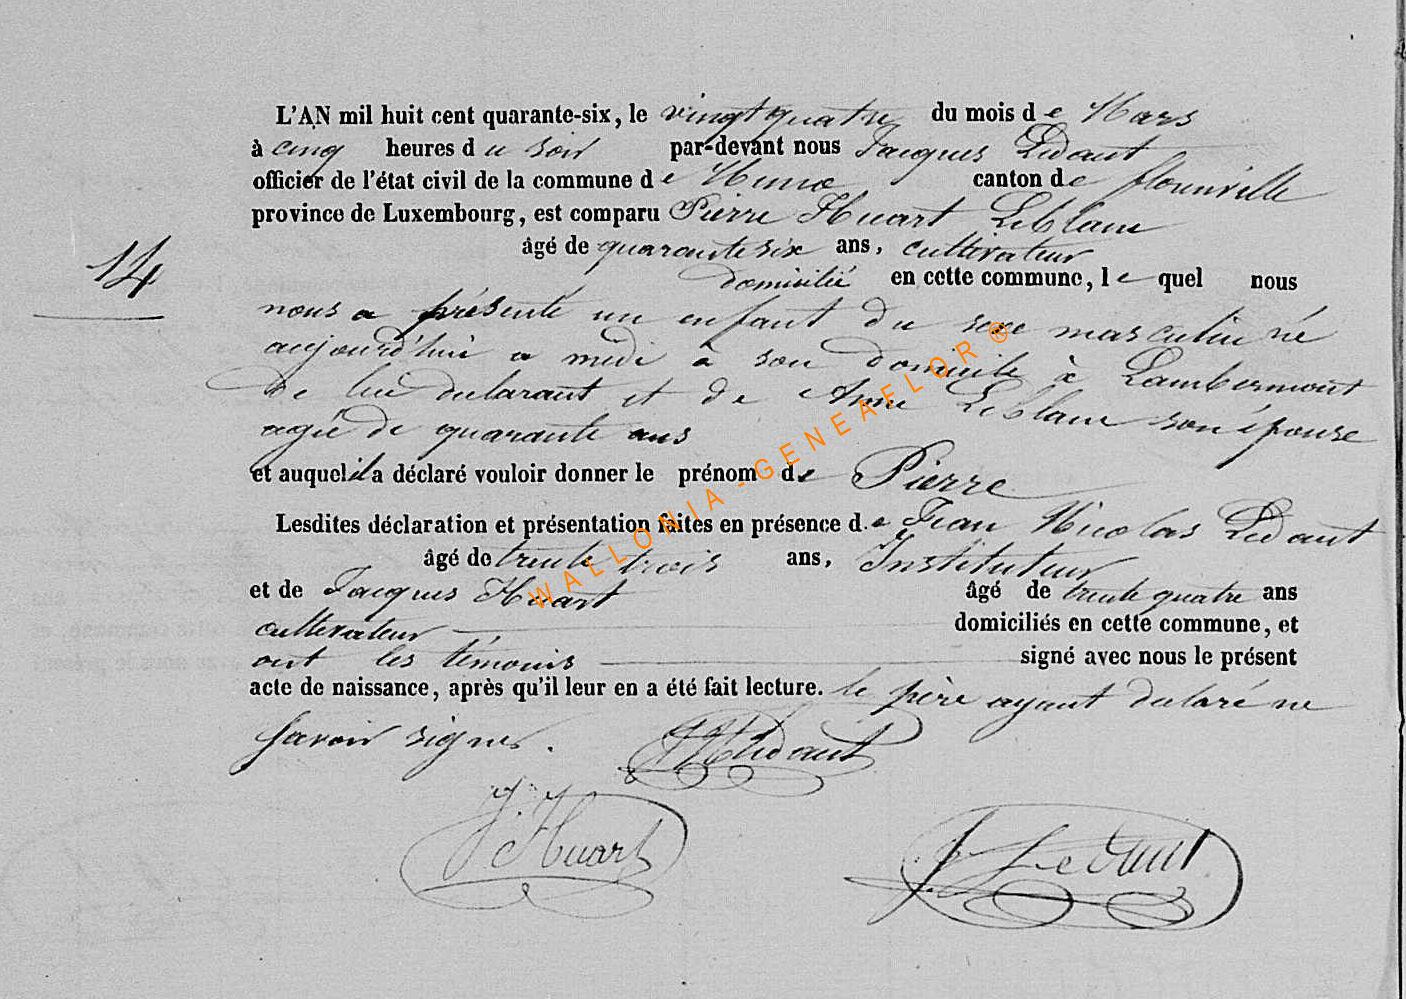 L'AN mil huit cent quarante-six, le vingt quatre du mois de Mars
à cinq heures du soir par-devant nous Jacques Ledant
officier de l'état civil de la commune de Muno canton de florenville
province de Luxembourg, est comparu Pierre Huart Leblanc
âgé de quarante six ans, cultivateur
domicilié en cette commune, lequel nous
14
nous a présenté un enfant du sexe masculin né
aujourd'hui a midi à son domicile à Lambermont
de lui declarant et de Anne Leblanc son épouse
agée de quarante ans
et auquel il a déclaré vouloir donner le prénom de Pierre
Lesdites déclaration et présentation faites en présence de Jean Nicolas Ledant
âgé de trente trois ans, Instituteur
et de Jacques Huart âgé de trente quatre ans
cultivateur domiciliés en cette commune, et
ont les témoins signé avec nous le présent
acte de naissance, après qu'il leur en a été fait lecture. le père ayant declaré ne
savoir signer. Ledant
J. Huart
J. Ledant
WALLONIA-GENEAFLOR®